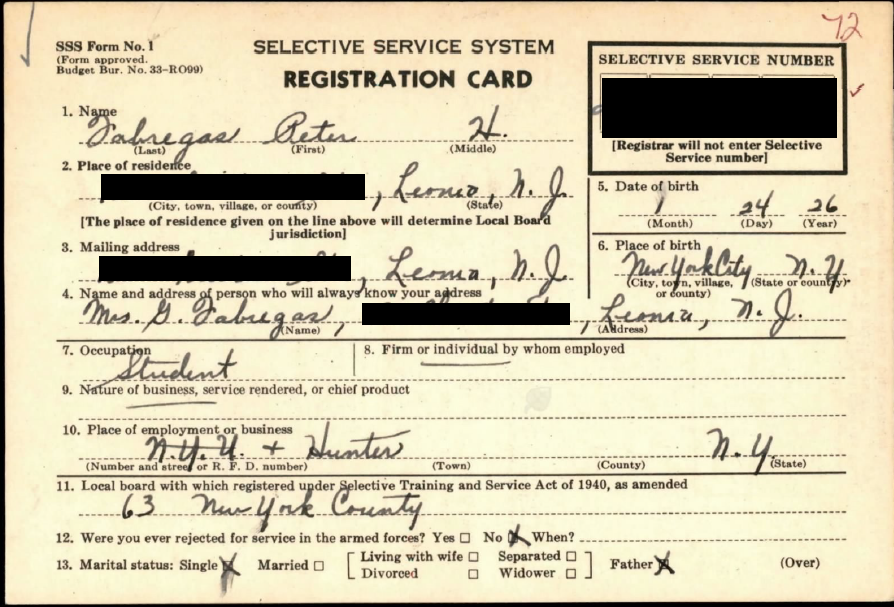 72
SSS Form No. 1
(Form approved.
Budget Bur. No. 33-RO99)
SELECTIVE SERVICE SYSTEM
REGISTRATION CARD
SELECTIVE SERVICE NUMBER
[Registrar will not enter Selective
Service number]
1. Name
Fabregas Peter H.
(Last) (First) (Middle)
2. Place of residence
, Leonia, N. J.
(City, town, village, or county) (State)
[The place of residence given on the line above will determine Local Board
jurisdiction]
5. Date of birth
1 24 26
(Month) (Day) (Year)
3. Mailing address
, Leonia, N. J.
6. Place of birth
New York City N. Y.
(City, town, village, (State or country)
or county)
4. Name and address of person who will always know your address
Mrs. G. Fabregas, , Leonia, N. J.
(Name) (Address)
7. Occupation
Student
8. Firm or individual by whom employed
9. Nature of business, service rendered, or chief product
10. Place of employment or business
N.Y.U. + Hunter N. Y.
(Number and street or R. F. D. number) (Town) (County) (State)
11. Local board with which registered under Selective Training and Service Act of 1940, as amended
63 New York County
12. Were you ever rejected for service in the armed forces? Yes ☐ No ☒ When?
13. Marital status: Single ☒ Married ☐ [ Living with wife ☐ Separated ☐ ] Father ☒ (Over)
Divorced ☐ Widower ☐